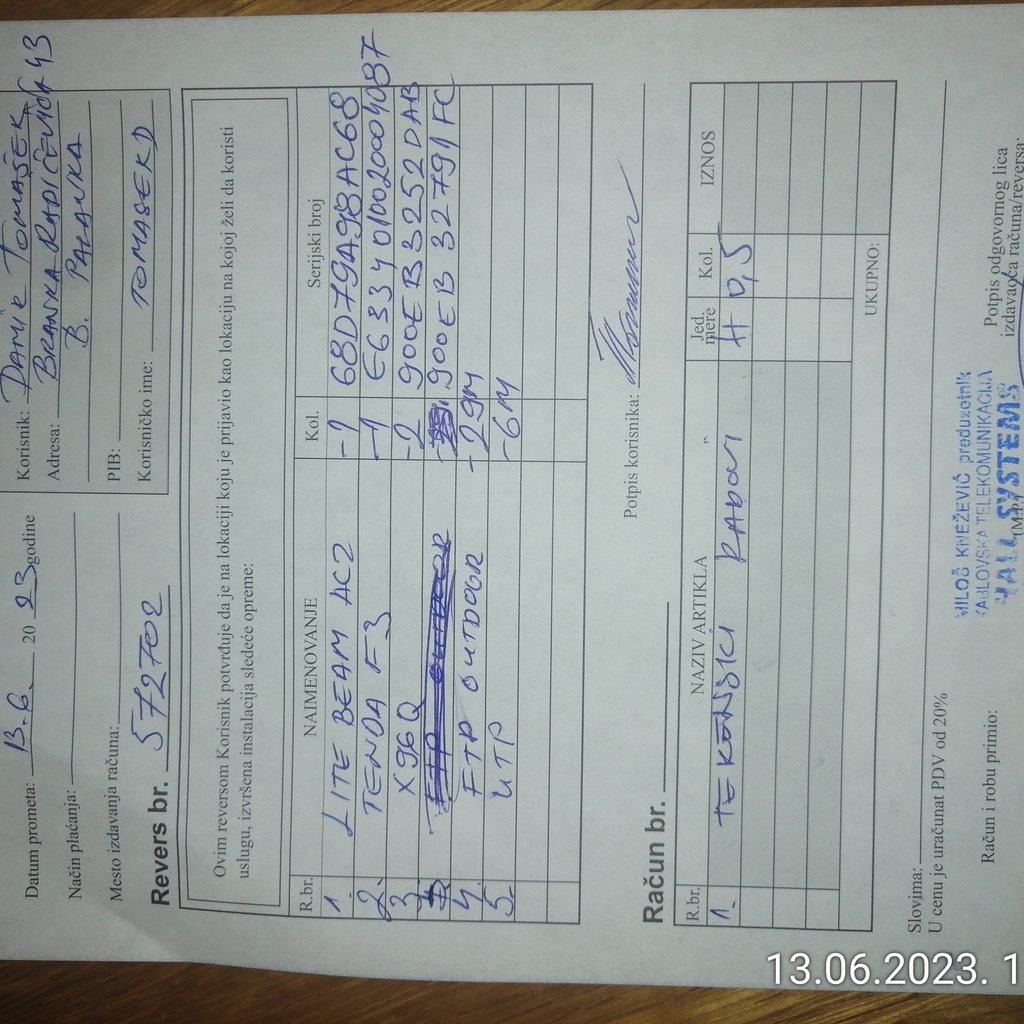 Datum prometa: 13.6. 20 23 godine
Način plaćanja:
Mesto izdavanja računa:
Revers br. 572702
Korisnik: DAMIR TOMAŠEK
Adresa: BRANKA RADIČEVIĆA 43
B. PALANKA
PIB:
Korisničko ime: TOMASEKD
Ovim reversom Korisnik potvrđuje da je na lokaciji koju je prijavio kao lokaciju na kojoj želi da koristi
uslugu, izvršena instalacija sledeće opreme:
R.br. NAIMENOVANJE Kol. Serijski broj
1. LITE BEAM AC2 -1 68D79A98AC68
2. TENDA F3 -1 E6334010020004087
3 X96Q -2 900EB3252DAB
900EB32791FC
4. FTP OUTDOOR -29M
5. UTP -6M
Potpis korisnika:
Račun br.
R.br. NAZIV ARTIKLA Jed. mere Kol. IZNOS
1. TEHNIČKI RADOVI H 0,5
UKUPNO:
Slovima:
U cenu je uračunat PDV od 20%
Račun i robu primio:
MILOŠ KNEŽEVIĆ preduzetnik
KABLOVSKA TELEKOMUNIKACIJA
HALL SYSTEMS
(M.P.)
Potpis odgovornog lica
izdavaoca računa/reversa:
13.06.2023. 1